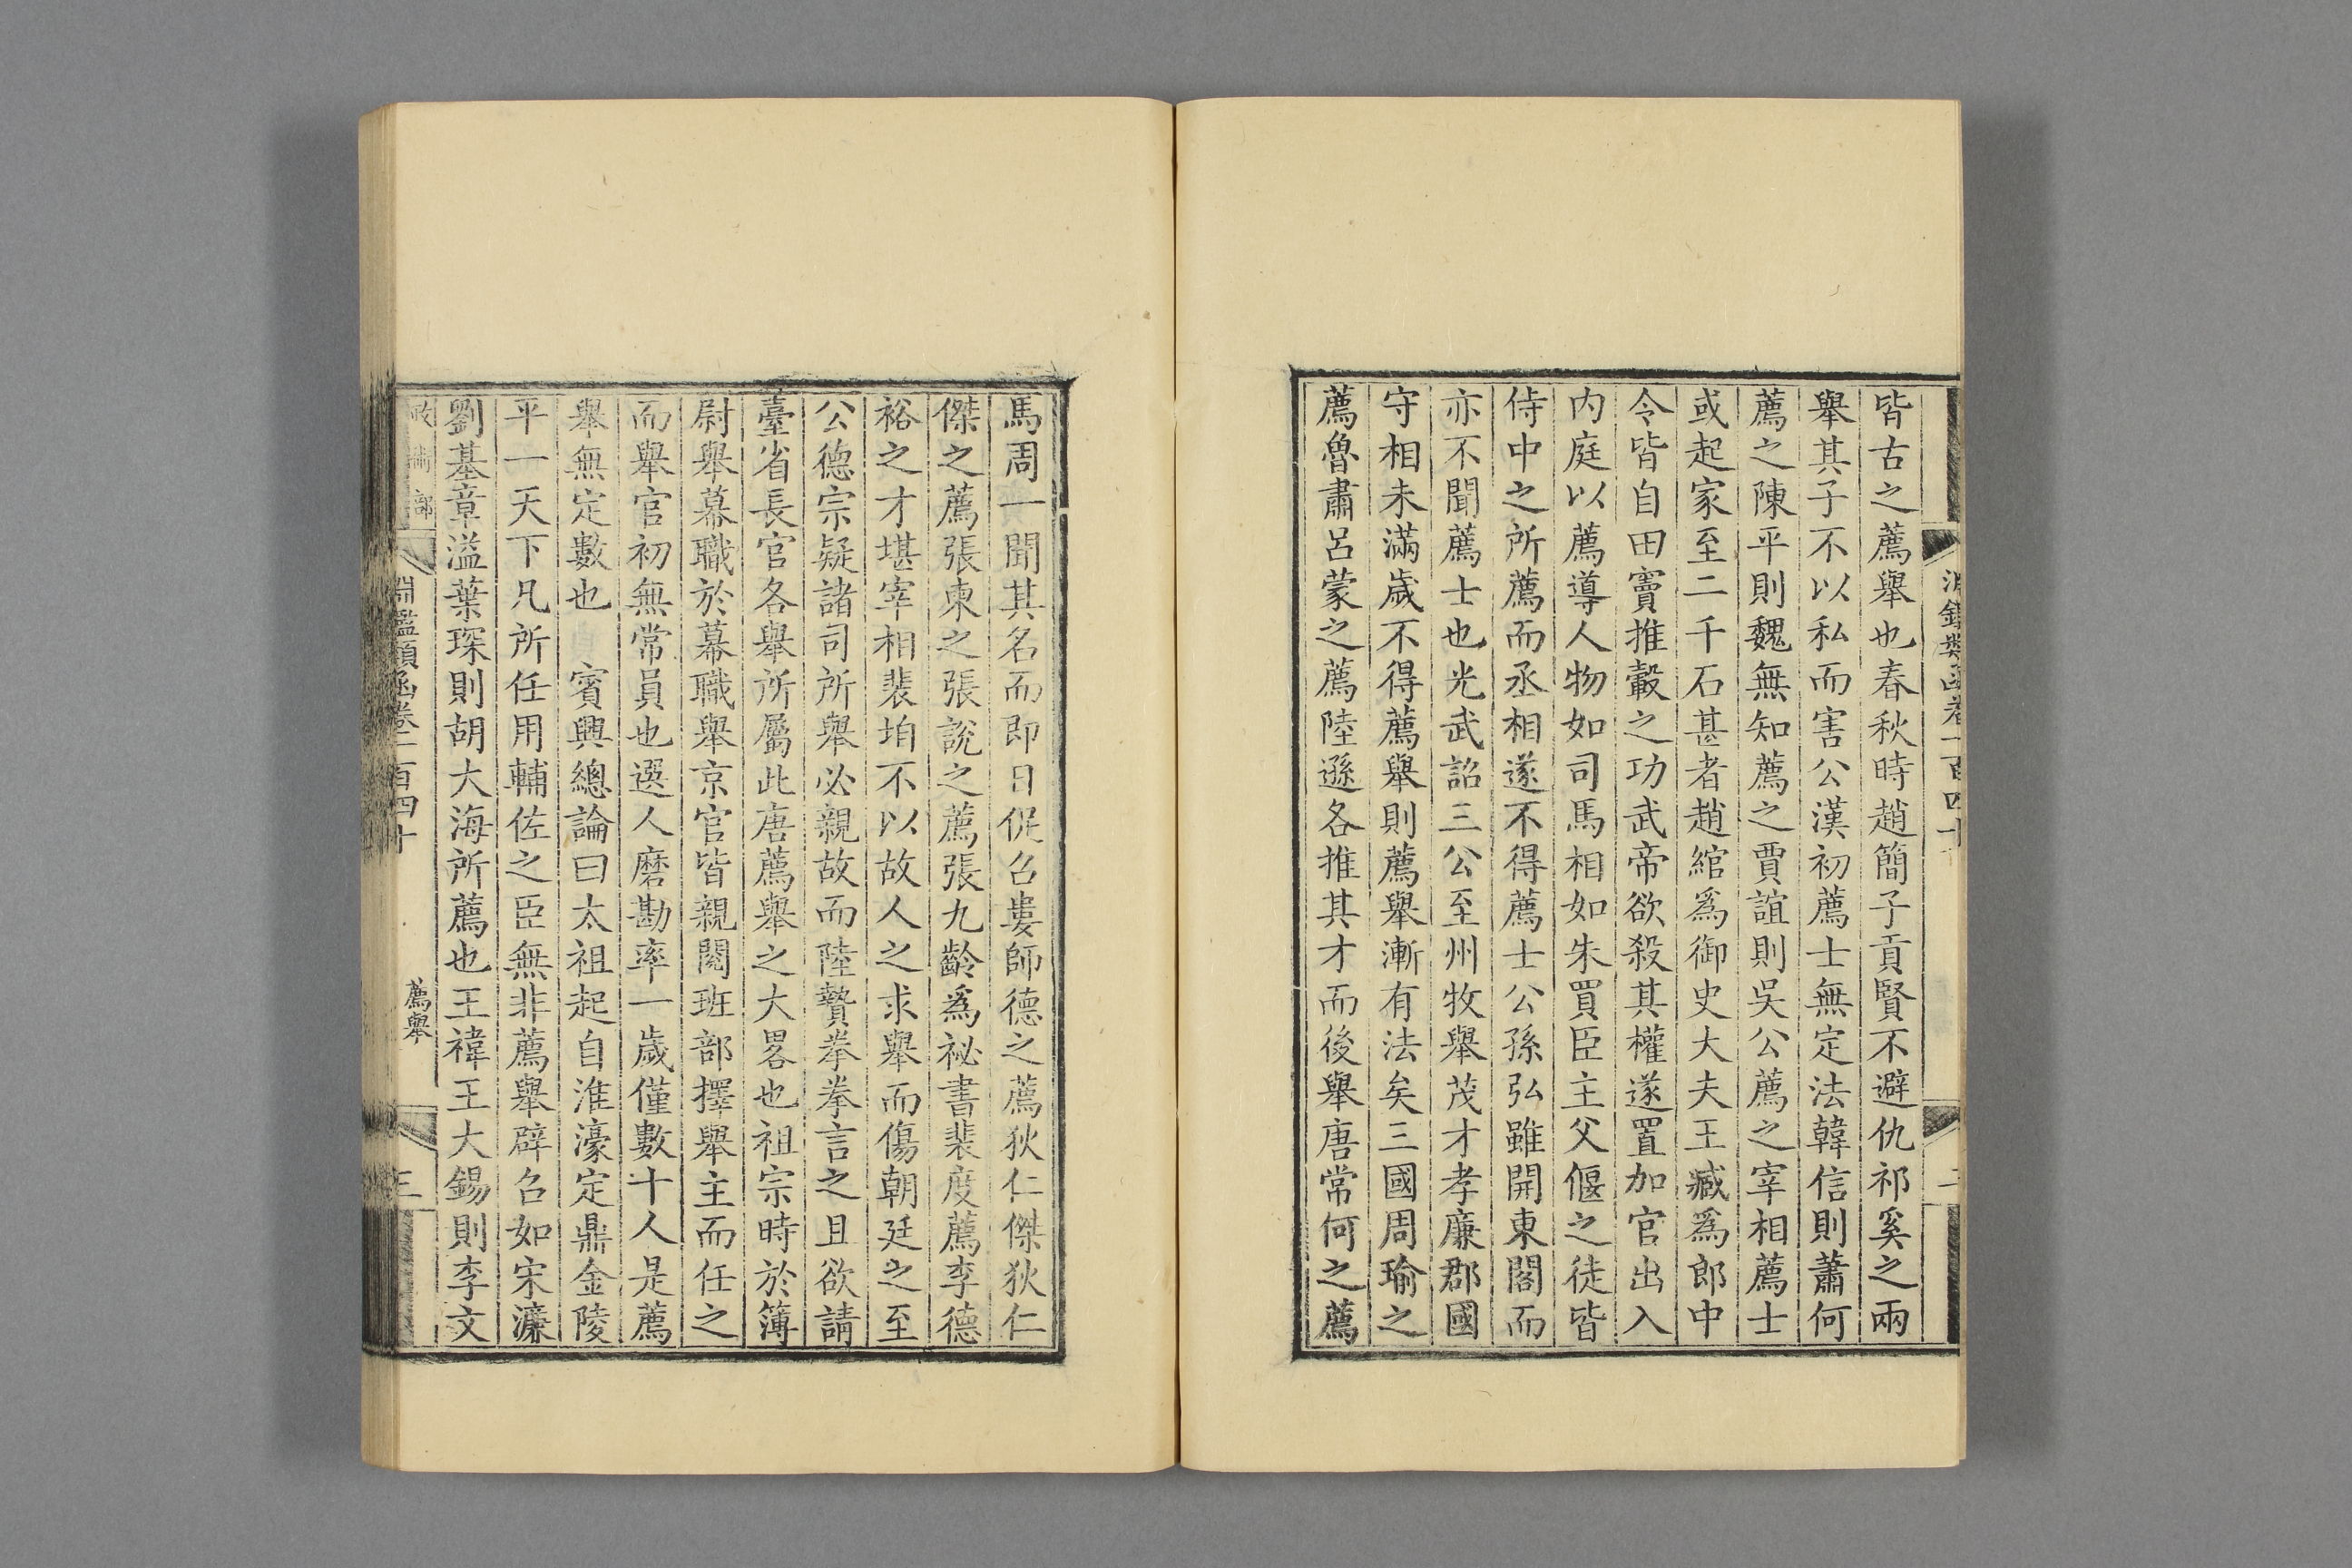 淵鑑類函卷一百四十
二
皆古之薦舉也春秋時趙簡子貢賢不避仇祁奚之兩
舉其子不以私而害公漢初薦士無定法韓信則蕭何
薦之陳平則魏無知薦之賈誼則吳公薦之宰相薦士
或起家至二千石甚者趙綰爲御史大夫王臧爲郎中
令皆自田竇推轂之功武帝欲殺其權遂置加官出入
內庭以薦導人物如司馬相如朱買臣主父偃之徒皆
侍中之所薦而丞相遂不得薦士公孫弘雖開東閣而
亦不聞薦士也光武詔三公至州牧舉茂才孝廉郡國
守相未滿歲不得薦舉則薦舉漸有法矣三國周瑜之
薦魯肅呂蒙之薦陸遜各推其才而後舉唐常何之薦
馬周一聞其名而即日促召婁師德之薦狄仁傑狄仁
傑之薦張柬之張說之薦張九齡爲祕書裴度薦李德
裕之才堪宰相裴垍不以故人之求舉而傷朝廷之至
公德宗疑諸司所舉必親故而陸贄拳拳言之且欲請
臺省長官各舉所屬此唐薦舉之大畧也祖宗時於簿
尉舉幕職於幕職舉京官皆親閱班部擇舉主而任之
而舉官初無常員也選人磨勘率一歲僅數十人是薦
舉無定數也　賓興總論曰太祖起自淮濠定鼎金陵
平一天下凡所任用輔佐之臣無非薦舉辟召如宋濂
劉基章溢葉琛則胡大海所薦也王禕王大錫則李文
政術部
淵鑑類函卷一百四十
薦舉
三